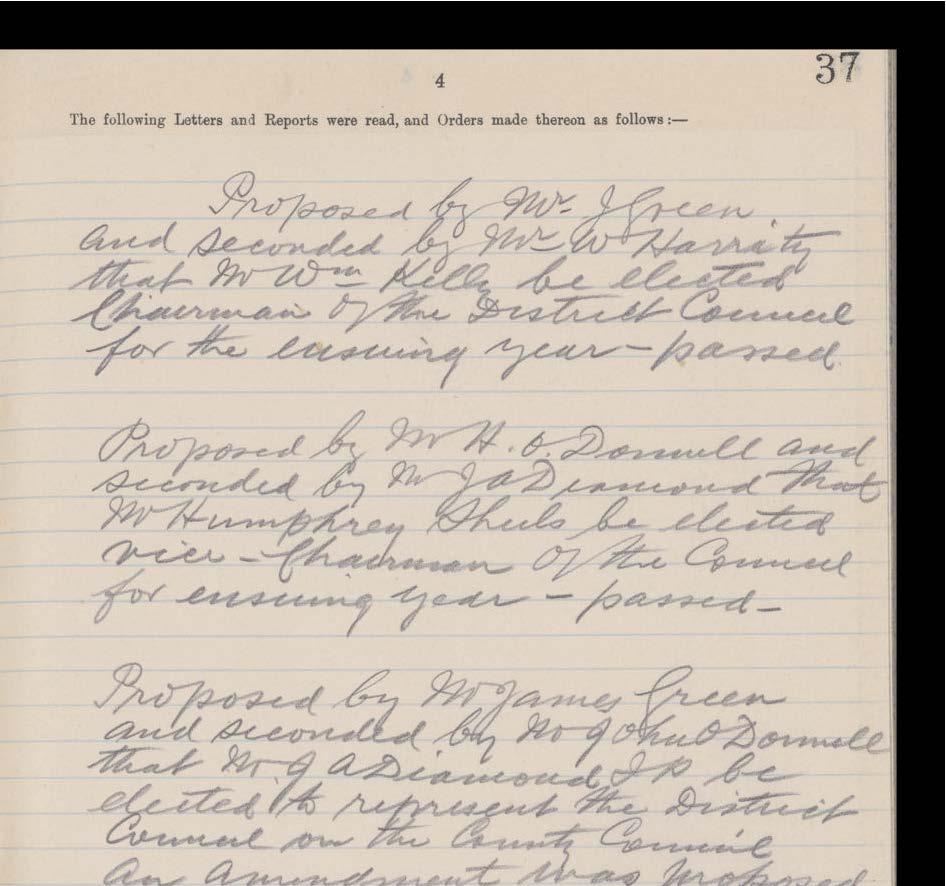 37
4
The following Letters and Reports were read, and Orders made thereon as follows:—
Proposed by Mr. J Green
and seconded by Mr W Harraty
that Mr Wm Kelly be elected
Chairman of the District Council
for the ensuing year – passed.
Proposed by Mr H. O. Donnell and
seconded by Mr J A Diamond that
Mr Humphrey Sheils be elected
vice – Chairman of the Council
for ensuing year – passed –
Proposed by Mr James Green
and seconded by Mr John O Donnell
that Mr. J A Diamond, J P be
elected to represent the District
Council on the County Council
An Amendment was proposed